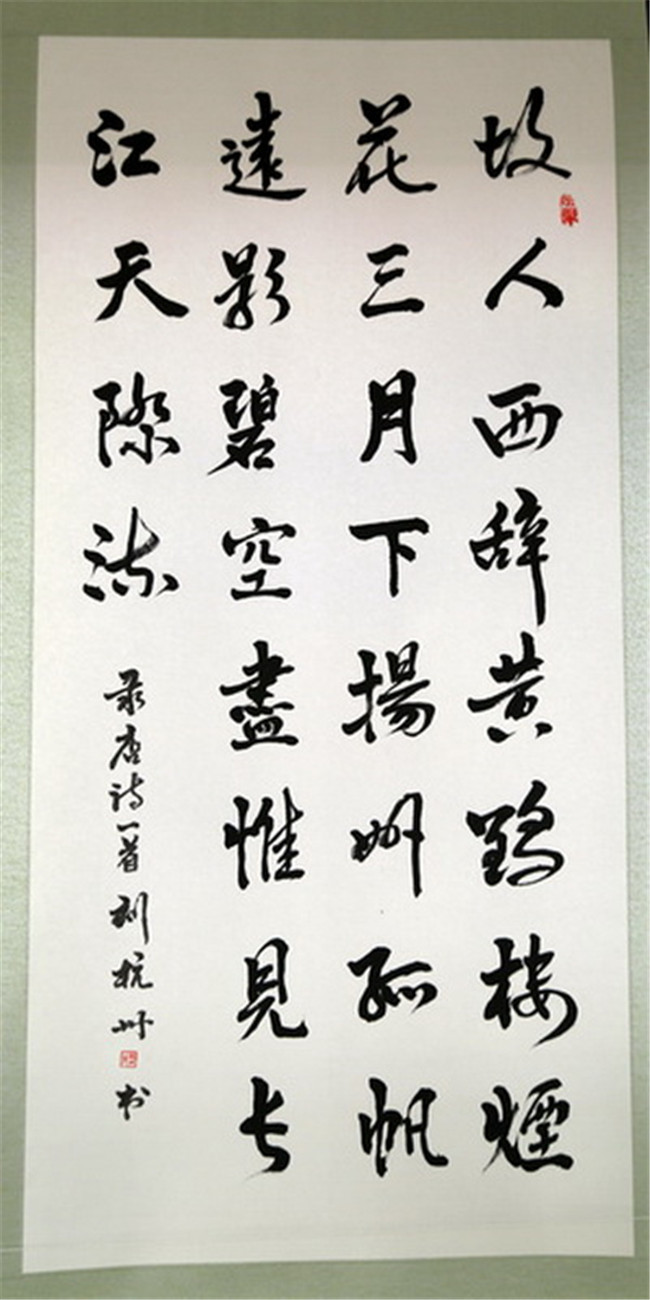 故人西辞黄鹤楼煙
花三月下揚州孤帆
遠影碧空盡惟見长
江天際流
录唐诗一首刘杭州书